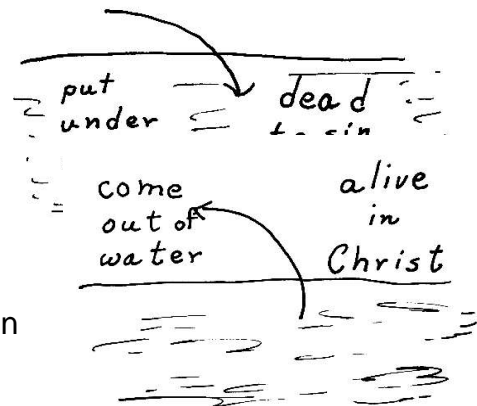 put
under
dead
to sin
come
out of
water
alive
in
Christ
n